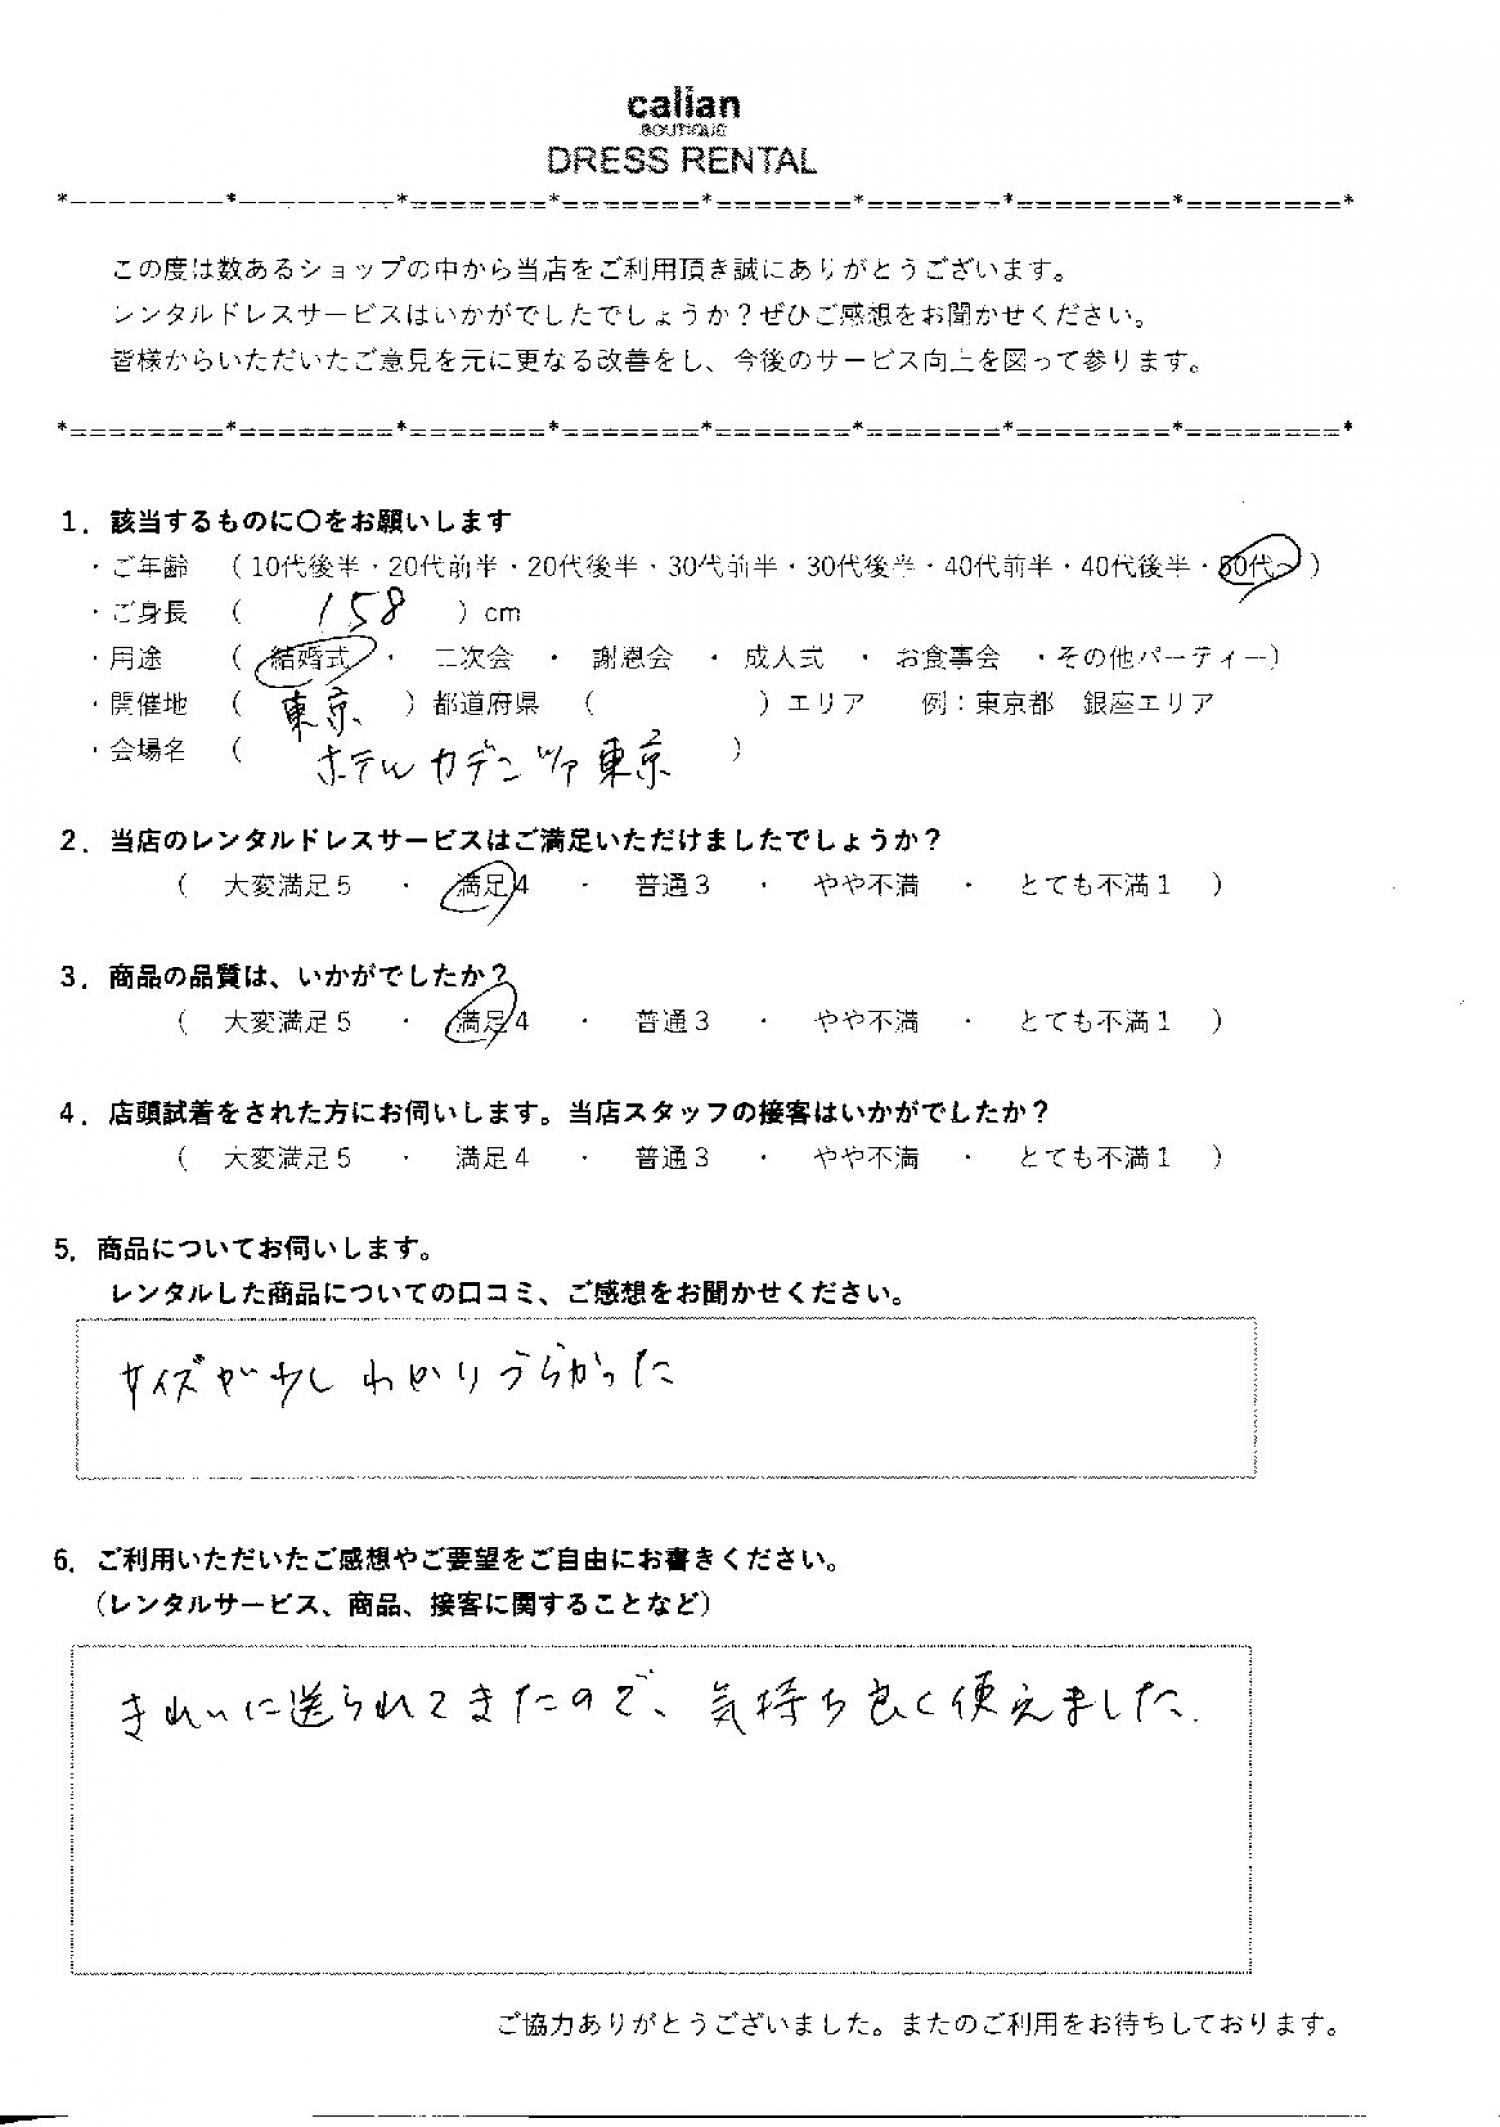 calian
BOUTIQUE
DRESS RENTAL
*--------*--------*=======*=======*=======*=======*========*========*
この度は数あるショップの中から当店をご利用頂き誠にありがとうございます。
レンタルドレスサービスはいかがでしたでしょうか？ぜひご感想をお聞かせください。
皆様からいただいたご意見を元に更なる改善をし、今後のサービス向上を図って参ります。
*========*========*=======*=======*=======*=======*========*========*
1．該当するものに〇をお願いします
・ご年齢 （10代後半・20代前半・20代後半・30代前半・30代後半・40代前半・40代後半・50代～）
・ご身長 （ 158 ）cm
・用途 （ 結婚式 ・ 二次会 ・ 謝恩会 ・ 成人式 ・ お食事会 ・その他パーティー）
・開催地 （ 東京 ）都道府県 （ ）エリア 例：東京都 銀座エリア
・会場名 （ ホテルカデンツァ東京 ）
2．当店のレンタルドレスサービスはご満足いただけましたでしょうか？
（ 大変満足５ ・ 満足４ ・ 普通３ ・ やや不満 ・ とても不満１ ）
3．商品の品質は、いかがでしたか？
（ 大変満足５ ・ 満足４ ・ 普通３ ・ やや不満 ・ とても不満１ ）
4．店頭試着をされた方にお伺いします。当店スタッフの接客はいかがでしたか？
（ 大変満足５ ・ 満足４ ・ 普通３ ・ やや不満 ・ とても不満１ ）
5．商品についてお伺いします。
レンタルした商品についての口コミ、ご感想をお聞かせください。
サイズが少しわかりづらかった
6．ご利用いただいたご感想やご要望をご自由にお書きください。
（レンタルサービス、商品、接客に関することなど）
きれいに送られてきたので、気持ち良く使えました.
ご協力ありがとうございました。またのご利用をお待ちしております。